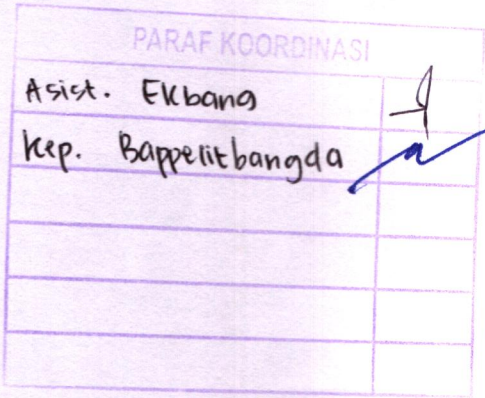 PARAF KOORDINASI
Asist. Ekbang
Kep. Bappelitbangda